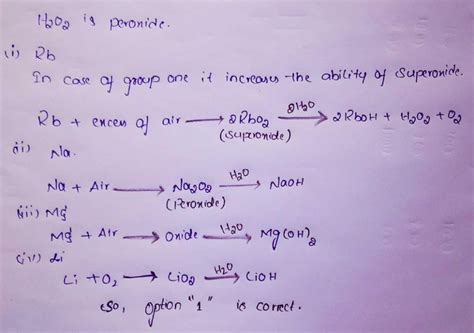 H2O2 is peroxide.
(i) Rb
In case of group one it increases the ability of superoxide.
Rb + excess of air → 2RbO2 2H2O→ 2RbOH + H2O2 + O2
(Superoxide)
(ii) Na.
Na + Air → Na2O2 H2O→ NaOH
(Peroxide)
(iii) Mg
Mg + Air → Oxide H2O→ Mg(OH)2
(iv) Li
Li + O2 → LiO2 H2O→ LiOH
So, option "1" is correct.